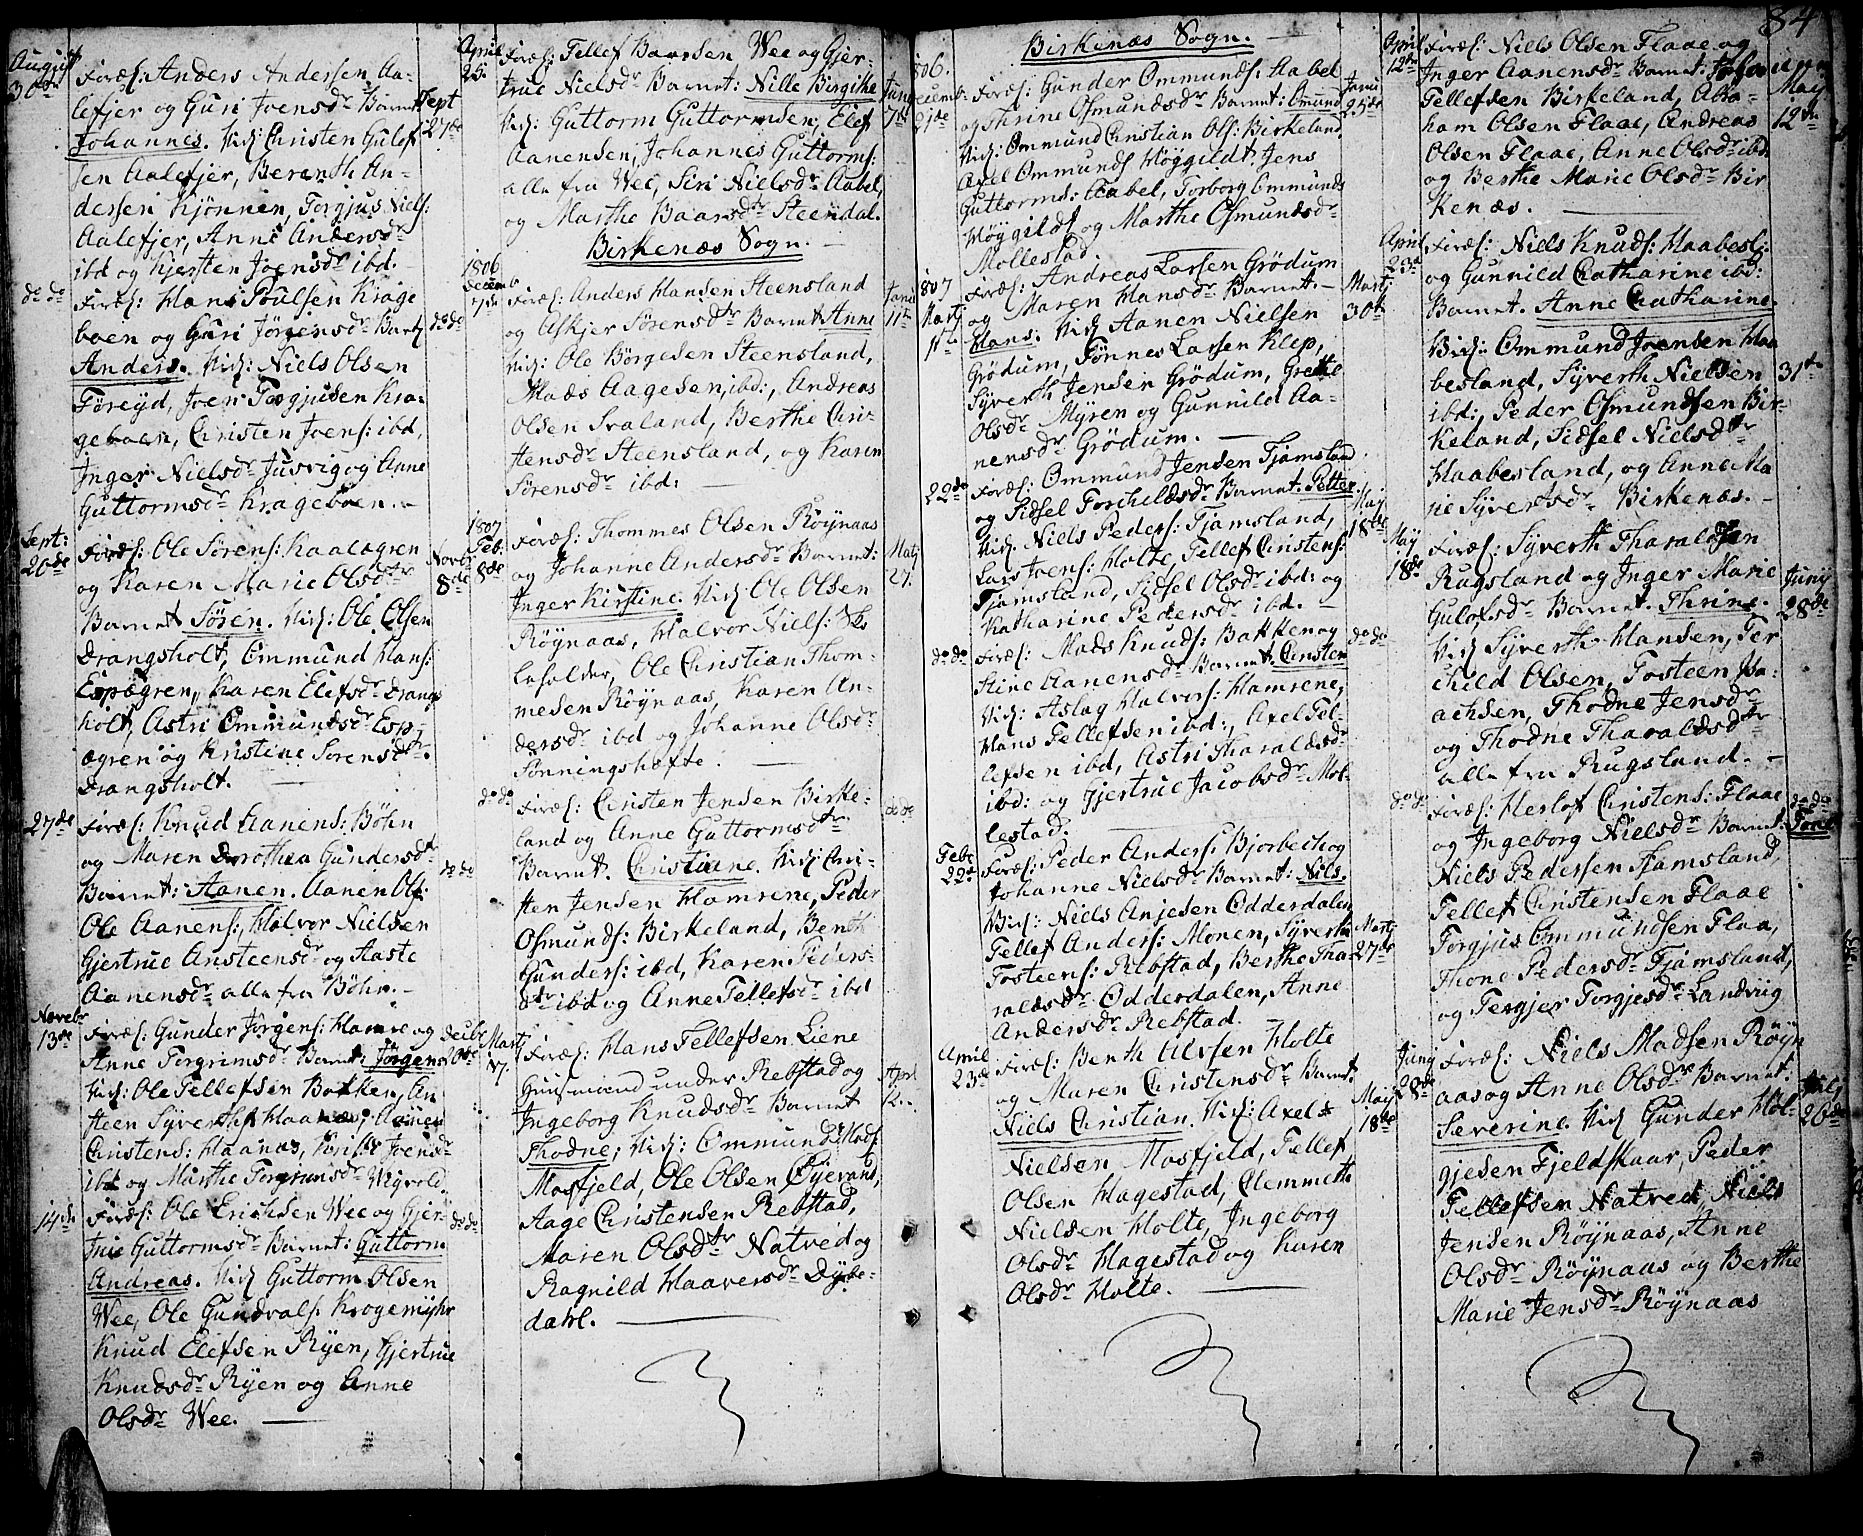 August
30te
Foræl: Anders Andersen Aa-
lefjer og Guri Joensdr Barnet
Johannes. Vid: Christen Gulof
sen Aalefjer, Berenth An-
dersen Kjönnen, Torgjus Niels:
Aalefjer, Anne Andersdr
ibd og Kjersten Joensdr ibd. -
Sept
27de
do do
Foræl: Hans Poulsen Kråge
boen og Guri Jörgensdr Barn
Anders. Vid: Niels Olsen
Föreyd, Joen Torgjusen Kra-
geboen, Christen Joens: ibd,
Inger Nielsdr Jusvig og Anne
Guttormsdr Krageboen. -
do do
Sept:
20de
Foræl: Ole Sörens: Kaalogren
og Karen Marie Olsdtr
Barnet Sören. Vid: Ole Olsen
Drangsholt, Ommund Hans:
Espögren, Karen Elefsdr Drangs
holt, Astri Ommundsdr Esp-
ögren og Kirstine Sörensdtr
Drangsholt. —
Novbr
8de
27de
Foræl: Knud Aanens: Böhn
og Maren Dorothea Gundersdtr
Barnet: Aanen. Aanen Ols:
Ole Aanens:, Halvor Nielsen
Gjertrue Ansteensdr og Aaste
Aanensdr alle fra Böhn. -
do do
Novebr
13de
Foræl: Gunder Jörgens: Hamre og
Anne Torgrimsdr Barnet: Jörgen
Vid: Ole Tellefsen Bakken, An
steen Syverths: Haanæs, Aanen
Christens: Haanæs, Joensdr
ibd og Marthe Torgrimsdr Vigvold.
14de
Foræl: Ole Erichsen Wee og Gjer-
true Guttormsdr Barnet: Guttorm
Andreas. Vid Guttorm Olsen
Wee, Ole Gundvals: Krogemyhr
Knud Elefsen Ryen, Gjertrue
Knudsdr Ryen og Anne
Olsdr Wee. —
do do
April
26.
Foræl: Tellef Baarsen Wee og Gjer-
true Nielsdr Barnet: Nille Birgithe
Vid: Guttorm Guttormsen, Elef
Aanensen, Johannes Guttorms:
alle fra Wee, Siri Nielsdr Aabel,
og Marthe Baarsdr Steendal.
Juny
7de
Birkenæs Sogn. —
1806
Decemb
7de
Foræl: Anders Hansen Steensland
og Askjer Sörensdtr Barnet Anne
Vid: Ole Börgesen Steensland,
Mads Aagesen, ibd:, Andreas
Olsen Svaland, Berthe Chri-
stensdr Steensland, og Karen
Sörensdr ibd: —
Janu
11te
1807
Feb.
8de
Foræl: Thommes Olsen Röynaas
og Johanne Andersdr Barnet:
Inger Kirstine. Vid: Ole Olsen
Röynaas, Halvor Niels:
Ole Christian Thom-
mesen Röynaas, Karen An-
dersdr ibd og Johanne Olsdr
Sönningshefte. —
Martj
27.
do do
Foræl: Christen Jensen Birke-
land og Anne Guttormsdtr
Barnet. Christiane. Vid: Chri-
sten Jensen Hamrene, Peder
Osmunds: Birkeland, Benth
Gunders: ibd, Karen Peders-
dtr ibd og Anne Tellefsdr ibd
do do
Martj
17.
Foræl: Hans Tellefsen Liene
Huusmand under Rebstad og
Ingeborg Knudsdr Barnet
Thodne; Vid: Ommund Mads:
Mosfjeld, Ole Olsen Öyevand,
Aage Christensen Rebstad,
Maren Olsdtr Natved og
Ragnild Haaversdr Dybe-
dahl. —
April
12.
Birkenæs Sogn. —
806.
Decemb.
21de
Foræl: Gunder Ommunds: Aabel
og Thrine Osmundsdr Barnet: Ommund
Vid: Ommund Christian Ols: Birkeland
Axel Ommunds Höygildt, Jens
Guttorms: Aabel, Torborg Ommundsd
Höygildt og Marthe Osmundsdr
Mollestad.
Janu
25de
1807
Martj
11te
Foræl: Andreas Larsen Grödum
og Maren Hansdr Barnet: -
Hans. Vid Aanen Nielsen
Grödum, Tönnes Larsen Klep,
Syverth Jensen Grödum, Grethe
Olsdr Myren og Gunnild Aa-
nensdr Grödum. —
Martj
30te
22de
Foræl: Ommund Jensen Tjamsland
og Sidsel Torchildsdr Barnet: Petter
Vid. Niels Peders: Tjamsland,
Lars Joens: Holte, Tellef Christens:
Tjamsland, Sidsel Olsdr ibd: og
Katharine Pedersdr ibd. —
Maj
18de
do do
Foræl: Mads Knuds: Bakken og
Stine Aanensdr Barnet: Christen
Vid: Aslag Halvors: Hamrene,
Hans Tellefsen ibd:, Axel Tel-
lefsen ibd, Astri Tharaldsdr
ibd: og Gjertrue Jacobsdr Mol-
lestad. —
do do
Febr
22de
Foræl: Peder Anders: Bjorbech og
Johanne Nielsdr Barnet: Nils.
Vid: Niels Anjesen Odderdalen
Tellef Anders: Monen, Syverth
Tosteens: Rebstad, Berthe Tha-
raldsdr Odderdalen, Anne
Andersdr Rebstad. —
Martj
27de
April
23de
Foræl: Benth Alvsen Holte
og Maren Christensdr Barnet:
Niels Christian. Vid: Axel
Nielsen Mosfjeld, Tellef
Olsen Hagestad, Clemmeth
Nielsen Holte, Ingeborg
Olsdr Hagestad og Karen
Olsdr Holte. —
Maij
18de
84
April
12te
Foræl: Niels Olsen Flaae og
Inger Aanensdr Barnet:
Tellefsen Birkeland, Abra-
ham Olsen Flaae, Andreas
Olsen Flaae, Anne Olsdr ibd
og Berthe Marie Olsdr Bir
kenæs. —
May
12te
April
23de
Foræl: Niels Knuds: Haabesl:
og Gunnild Catharine ibd:
Barnet. Anne Catharine
Vid: Ommund Joensen Haa
besland, Syverth Nielsen
ibd:, Peder Osmundsen Bir-
keland, Sidsel Nielsdtr
Haabesland, og Anne Ma
rie Syvertsdr Birkenæs. -
31te
May
18de
Foræl: Syverth Tharaldsen
Rugsland og Inger Marie
Gulofsdr Barnet. Thrine.
Vid Syverth Hansen, Ter
child Olsen, Tosteen Isa-
achsen, Thodne Jensdr
og Thodne Tharaldsdtr
alle fra Rugsland. -
Junij
28de
do do
Foræl: Herlof Christens: Flaae
og Ingeborg Nielsdr Barnet: Tone
Niels Pedersen Tjamsland,
Tellef Christensen Flaae
Torgjus Ommundsen Flaa,
Thone Pedersdr Tjamsland,
og Tergjer Torgjesdr Landvig
do do
Juny
28de
Foræl: Niels Madsen Röyn
aas og Anne Olsdr Barnet:
Severine. Vid Gunder Hol-
gjesen Fjeldskaar, Peder
Tellefsen Natved, Niels
Jensen Röynaas, Anne
Olsdr Röynaas og Berthe
Marie Jensdr Röynaas
July
26de